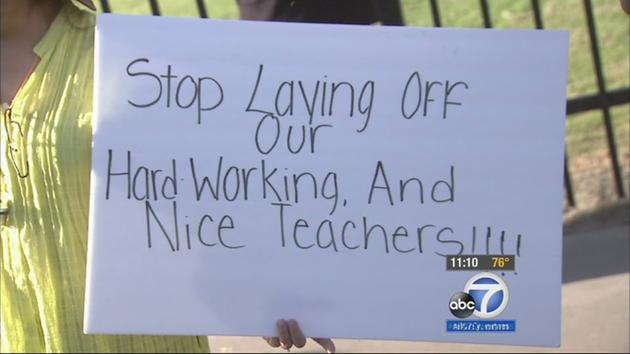 Stop Laying Off
Our
Hard-Working, And
Nice Teachers!!!!
11:10 76°
abc 7